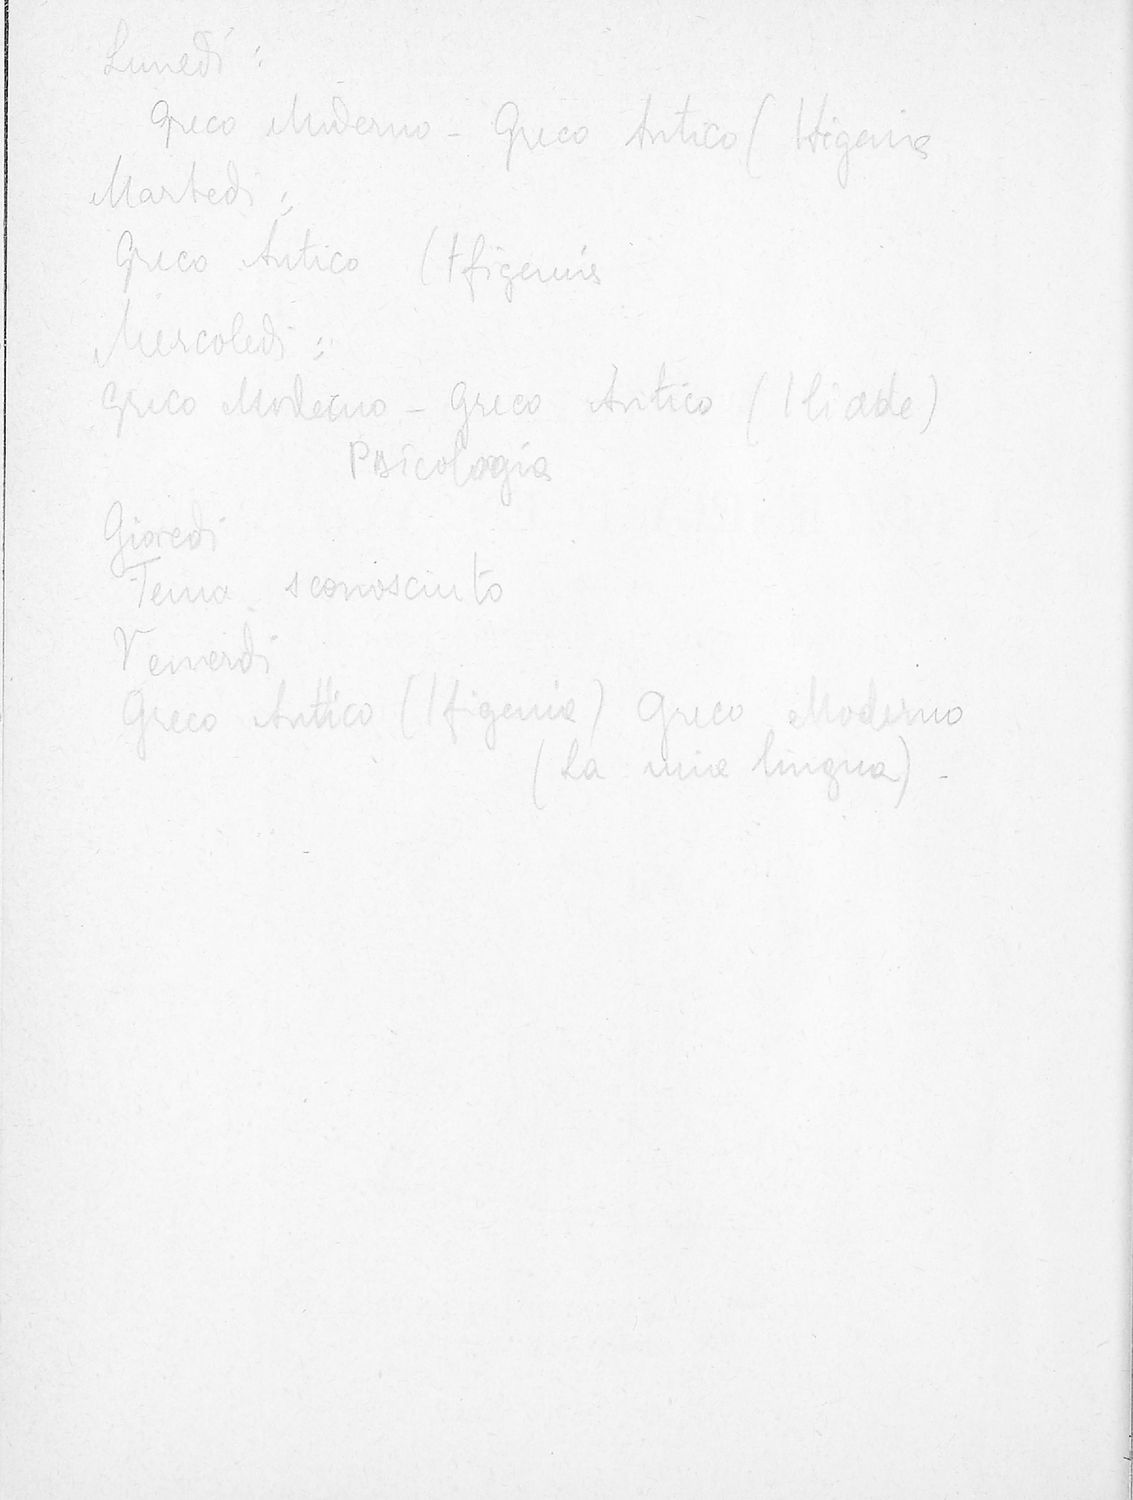 Lunedì :
Greco Moderno - Greco Antico ( Ifigenia
Martedì :
Greco Antico ( Ifigenia
Mercoledì :
Greco Moderno - Greco Antico ( Iliade )
Psicologia
Giovedì
Tema sconosciuto
Venerdì
Greco Antico ( Ifigenia ) Greco Moderno
( La mia lingua ) -